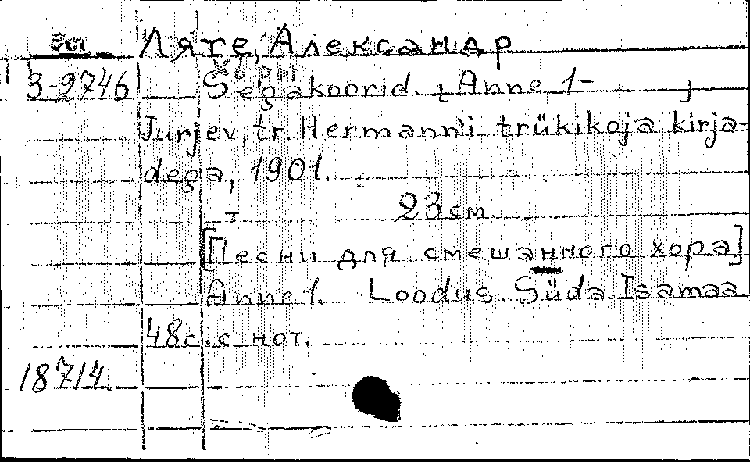 Эст Ляте, Александр
3-2746 Segakoorid. [Anne 1- ]
Jurjev, tr. Hermann'i trükikoja kirja-
dega, 1901.
23 см
[Песни для смешанного хора]
Anne 1. Loodus. Süda. Isamaa
48 с. с нот.
18714